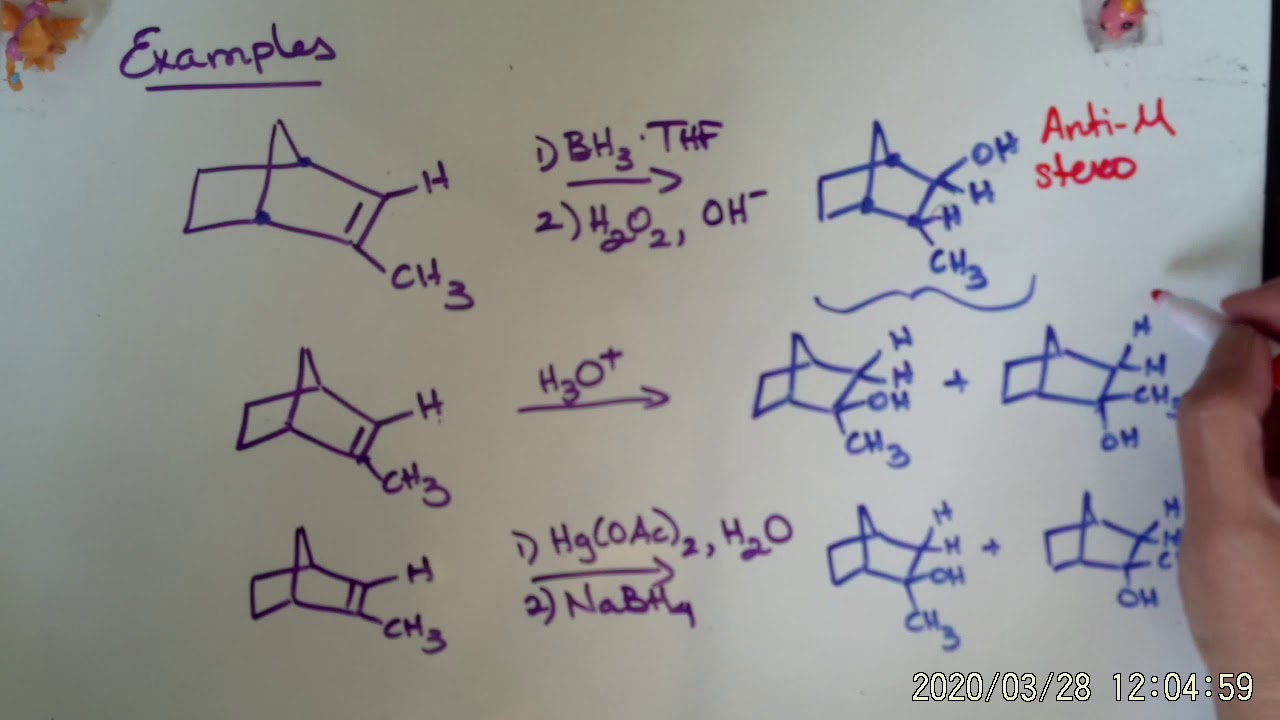 Examples
H
CH3
1) BH3·THF
2) H2O2, OH⁻
OH
H
H
CH3
Anti-M
stereo
H
CH3
H3O+
H
H
OH
CH3
+
H
H
CH3
OH
H
CH3
1) Hg(OAc)2, H2O
2) NaBH4
H
H
OH
CH3
+
H
H
C
OH
2020/03/28 12:04:59